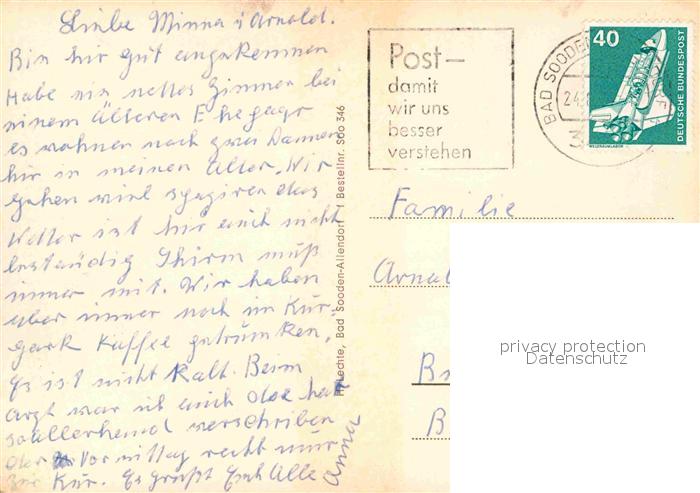 Liebe Minna u Arnold.
Bin hir gut angekommen
Habe ein nettes Zimmer bei
einem älteren Ehepaar
es wohnen noch zwei Damen
hir in meinen Alter. Wir
gehen viel spaziren das
Wetter ist hir auch nicht
beständig Schirm muß
immer mit. Wir haben
aber immer noch im Kur-
park Kaffee getrunken.
Es ist nicht kalt. Beim
Arzt war ich auch der hat
so allerhand verschriben
der Vormittag reicht nur
zur Kur. Es grüßt Euch Alle
Anna
H. Lechte, Bad Sooden-Allendorf / Bestellnr. Soo 346
Post-
damit
wir uns
besser
verstehen
BAD SOODEN
24.
3
40
DEUTSCHE BUNDESPOST
WELTRAUMLABOR
Familie
Arnol
privacy protection
Datenschutz
B
B